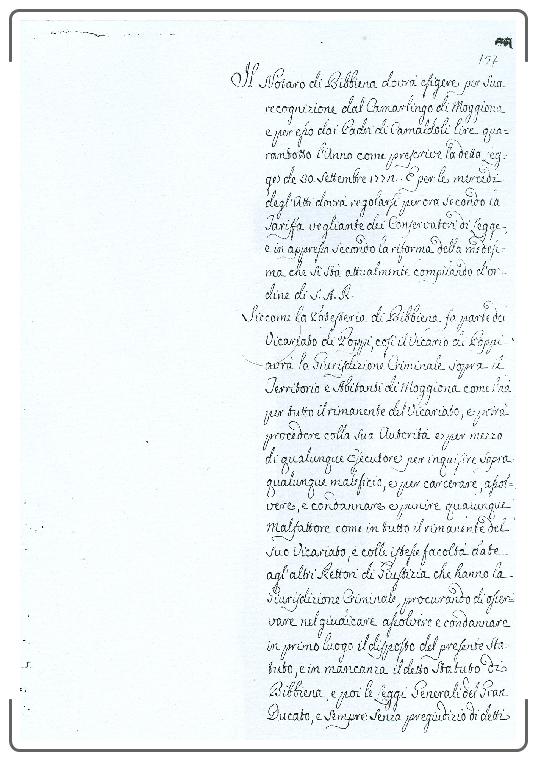 157
Il Notaro di Bibbiena dovrà esigere per sua
recognizione dal Camarlingo di Moggiona
e per esso dai Padri di Camaldoli lire qua=
rantotto l'Anno come prescrive la detta Leg=
ge de 30. Settembre 1772. E per le mercedi
degl'Atti dovrà regolarsi per ora secondo la
Tariffa vegliante dei Conservatori di Legge,
e in appresso secondo la riforma della medesi=
ma che si stà attualmente compilando d'or=
dine di S. A. R.
Siccome la Potesteria di Bibbiena fa parte del
Vicariato di Poppi, così il Vicario di Poppi
avrà la Giurisdizione Criminale sopra il
Territorio e Abitanti di Moggiona come l'hà
per tutto il rimanente del Vicariato, e potrà
procedere colla sua Autorità e per mezzo
di qualunque Esecutore per inquisire sopra
qualunque maleficio, e per carcerare, assol=
vere, e condannare e punire qualunque
Malfattore come in tutto il rimanente del
suo Vicariato, e colle istesse facoltà date
agl'altri Rettori di Giustizia che hanno la
Giurisdizione Criminale, procurando di osser=
vare nel giudicare assolvere e condannare
in primo luogo il disposto del presente Sta=
tuto, e in mancanza il detto Statuto di
Bibbiena, e poi le Leggi Generali del Gran
Ducato, e sempre senza pregiudizio di detti